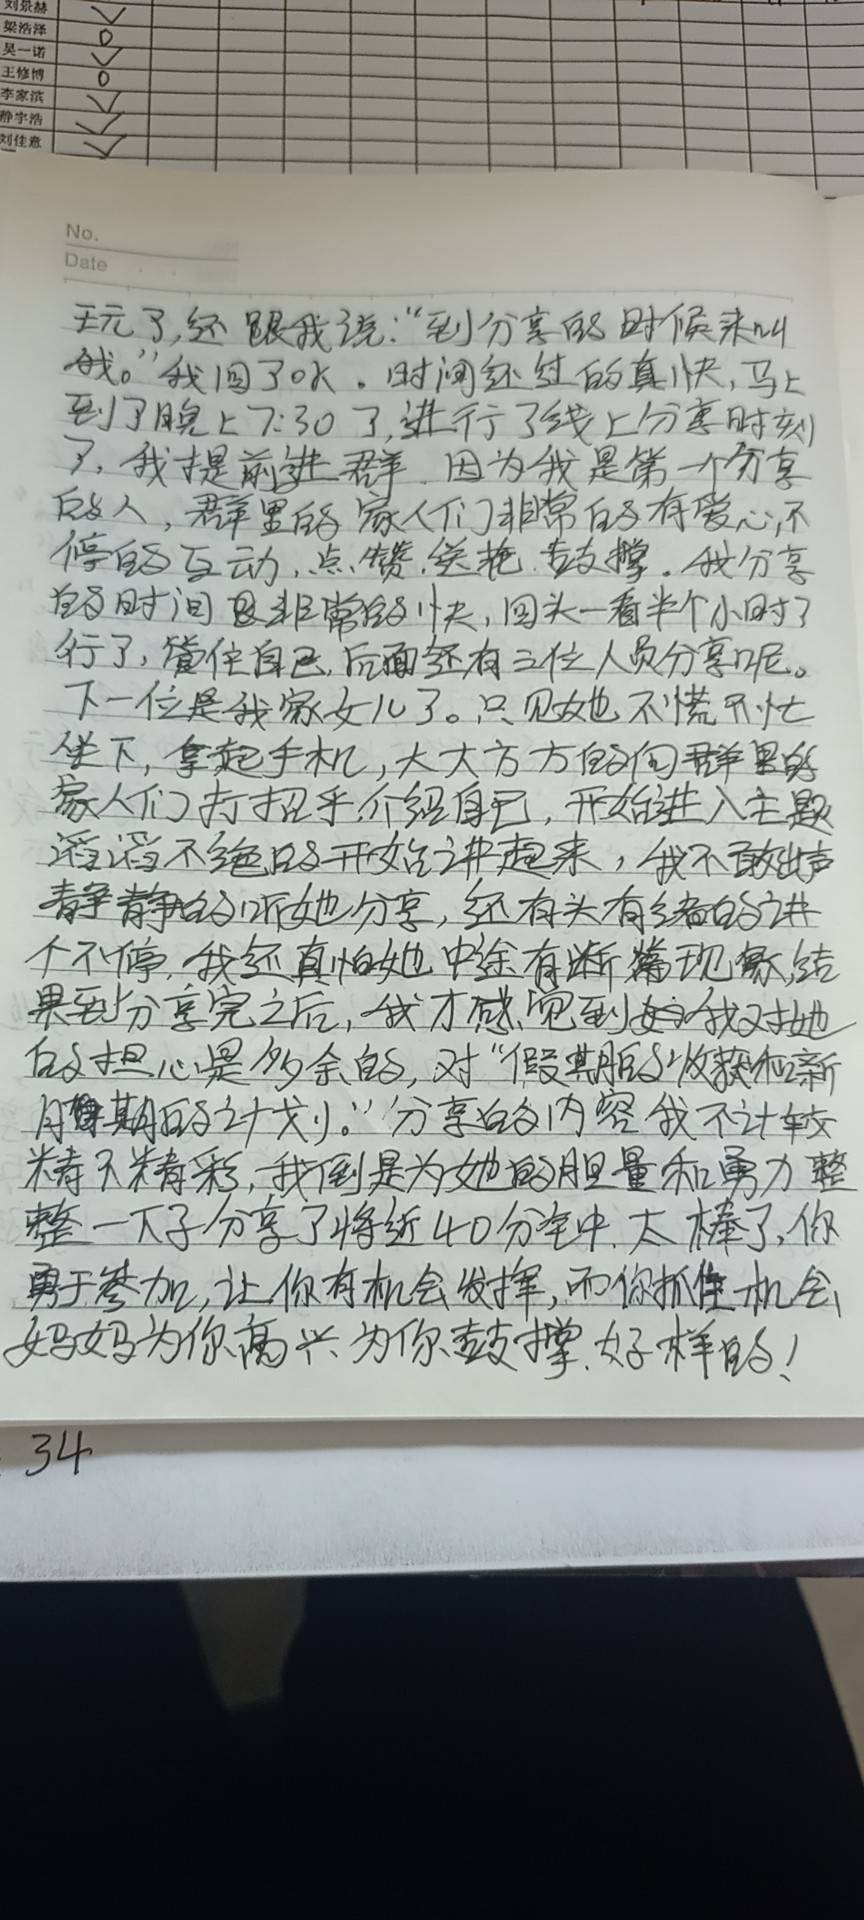 刘景赫
梁浩泽
吴一诺
王修博
李家滨
静宇浩
刘佳意
No.
Date
玩了,还跟我说:“到分享的时候来叫
我。”我回了OK。时间还过的真快,马上
到了晚上7:30了,进行了线上分享时刻
了,我提前进群.因为我是第一个分享
的人,群里的家人们非常的有爱心,不
停的互动、点赞、送花、鼓撑。我分享
的时间也非常的快,回头一看半个小时了
行了,管住自己,后面还有三位人员分享呢。
下一位是我家女儿了。只见她不慌不忙
坐下,拿起手机,大大方方的向群里的
家人们打招乎,介绍自己,开始进入主题
滔滔不绝的开始讲起来,我不敢出声
静静的听她分享,还有头有绪的讲
个不停,我还真怕她中途有断篇现象,结
果到分享完之后,我才感觉到我对她
的担心是多余的,对“假期的收获和新
月期的计划。”分享的内容我不计较
精不精彩,我倒是为她的胆量和勇力整
整一下子分享了将近40分钟,太棒了,你
勇于参加,让你有机会发挥,而你抓住机会,
妈妈为你高兴为你鼓撑.好样的!
34